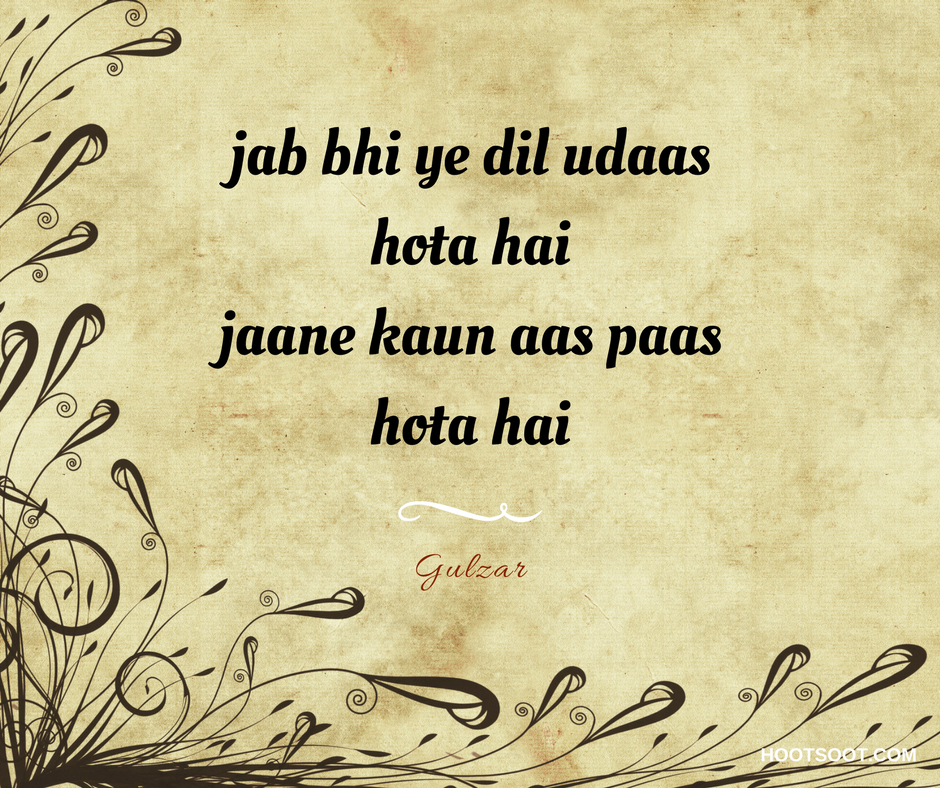 jab bhi ye dil udaas
hota hai
jaane kaun aas paas
hota hai
Gulzar
HOOTSOOT.COM